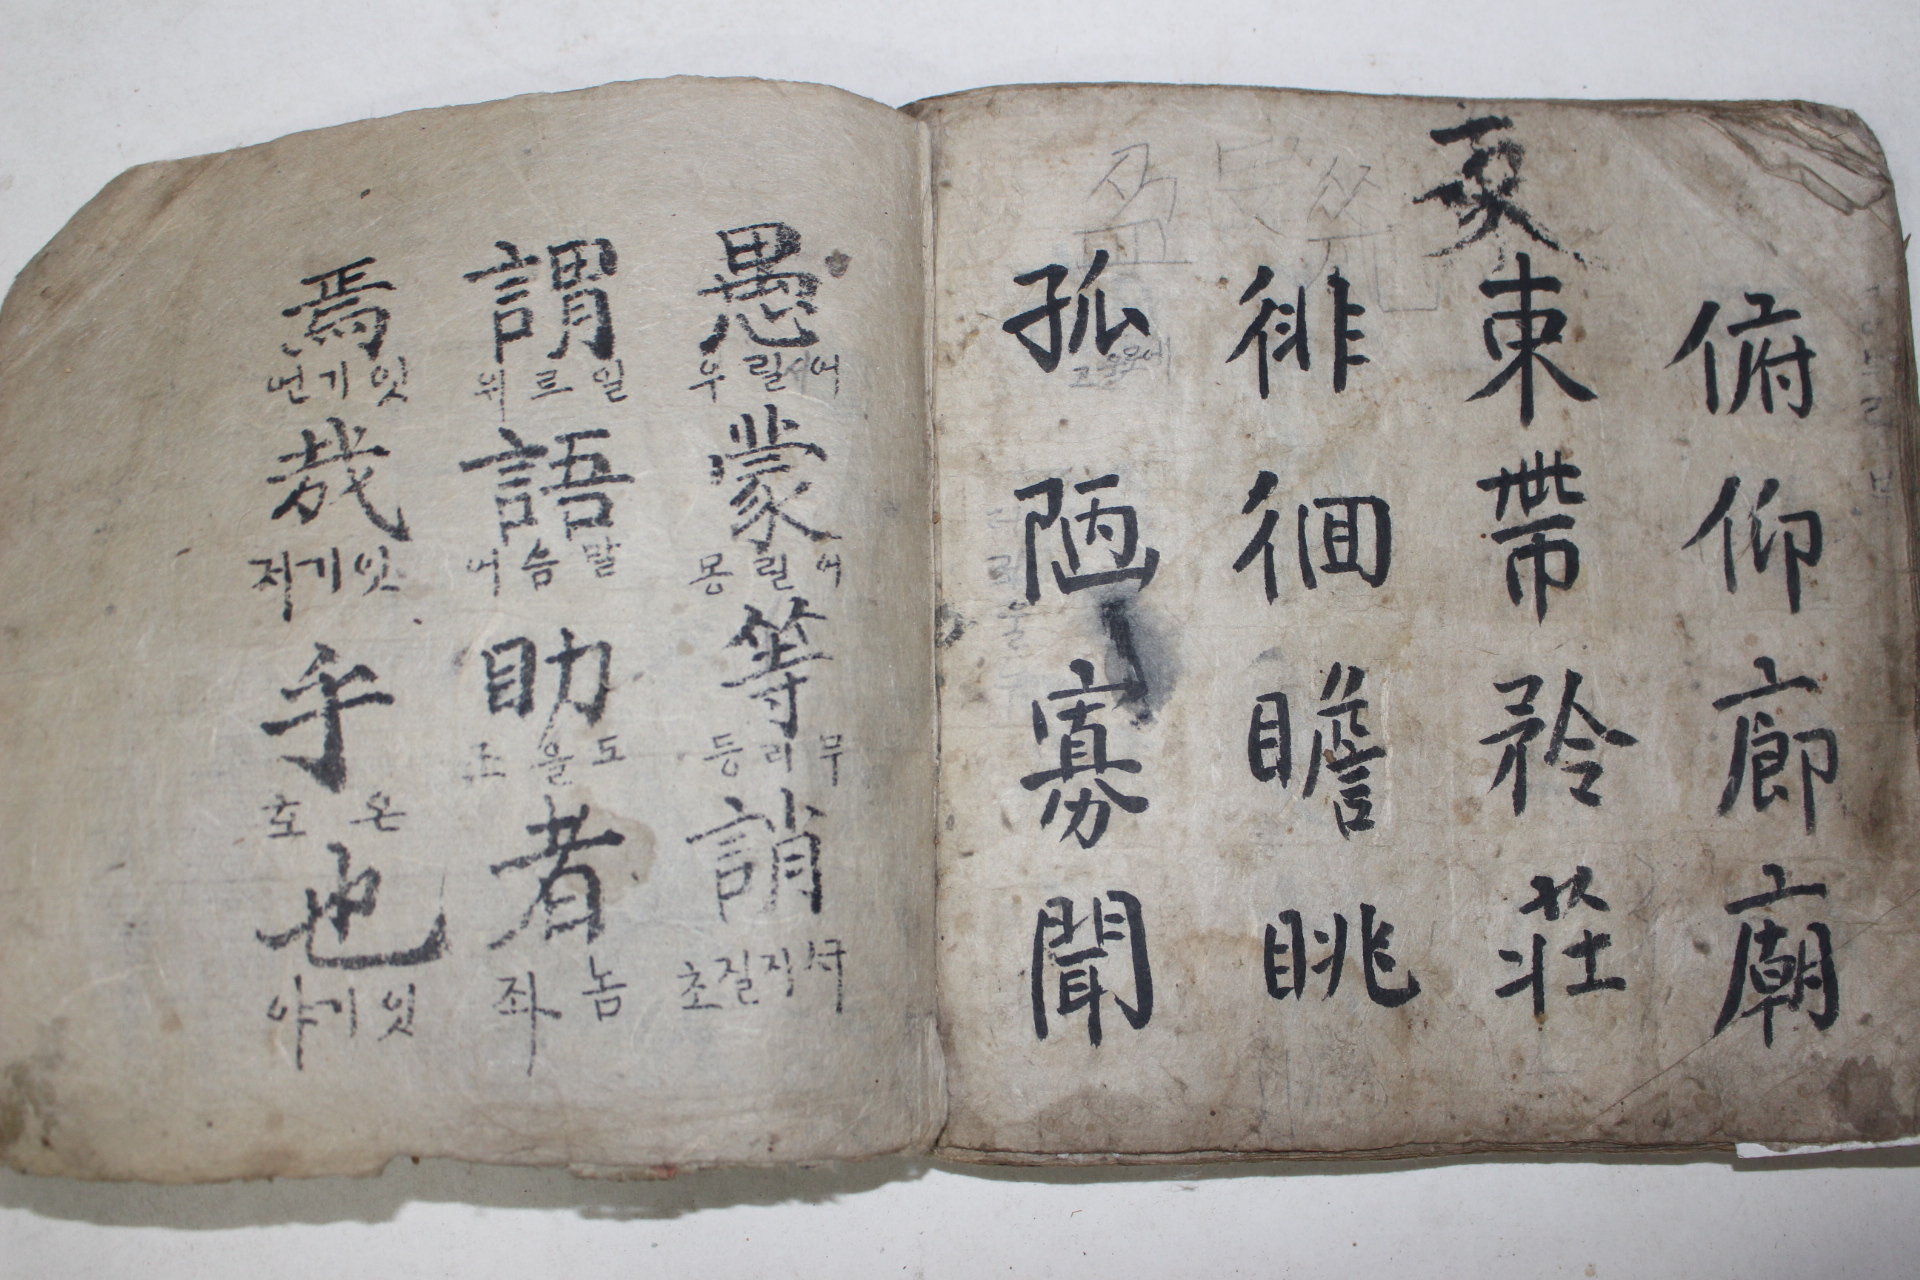 俯仰廊廟
束帶矜莊
徘徊瞻眺
孤陋寡聞
愚
어릴우
蒙
어릴몽
等
무리등
誚
ᄭᅮ지질초
謂
일르위
語
말슴어
助
도을조
者
놈쟈
焉
잇기언
哉
잇기ᄌᆡ
乎
온호
也
잇기야